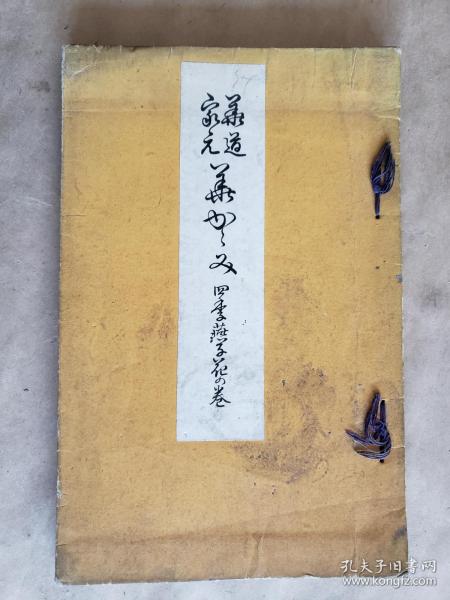 華道
家元
華かゝみ
四季 花の巻
孔夫子旧书网
www.kongfz.com